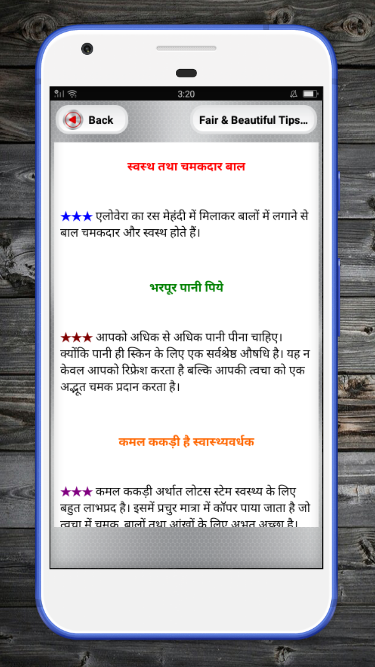 3:20
Back
Fair & Beautiful Tips...
स्वस्थ तथा चमकदार बाल
★★★ एलोवेरा का रस मेहंदी में मिलाकर बालों में लगाने से
बाल चमकदार और स्वस्थ होते हैं।
भरपूर पानी पिये
★★★ आपको अधिक से अधिक पानी पीना चाहिए।
क्योंकि पानी ही स्किन के लिए एक सर्वश्रेष्ठ औषधि है। यह न
केवल आपको रिफ्रेश करता है बल्कि आपकी त्वचा को एक
अद्भूत चमक प्रदान करता है।
कमल ककड़ी है स्वास्थ्यवर्धक
★★★ कमल ककड़ी अर्थात लोटस स्टेम स्वस्थ्य के लिए
बहुत लाभप्रद है। इसमें प्रचुर मात्रा में कॉपर पाया जाता है जो
त्वचा में चमक, बालों तथा आंखों के लिए